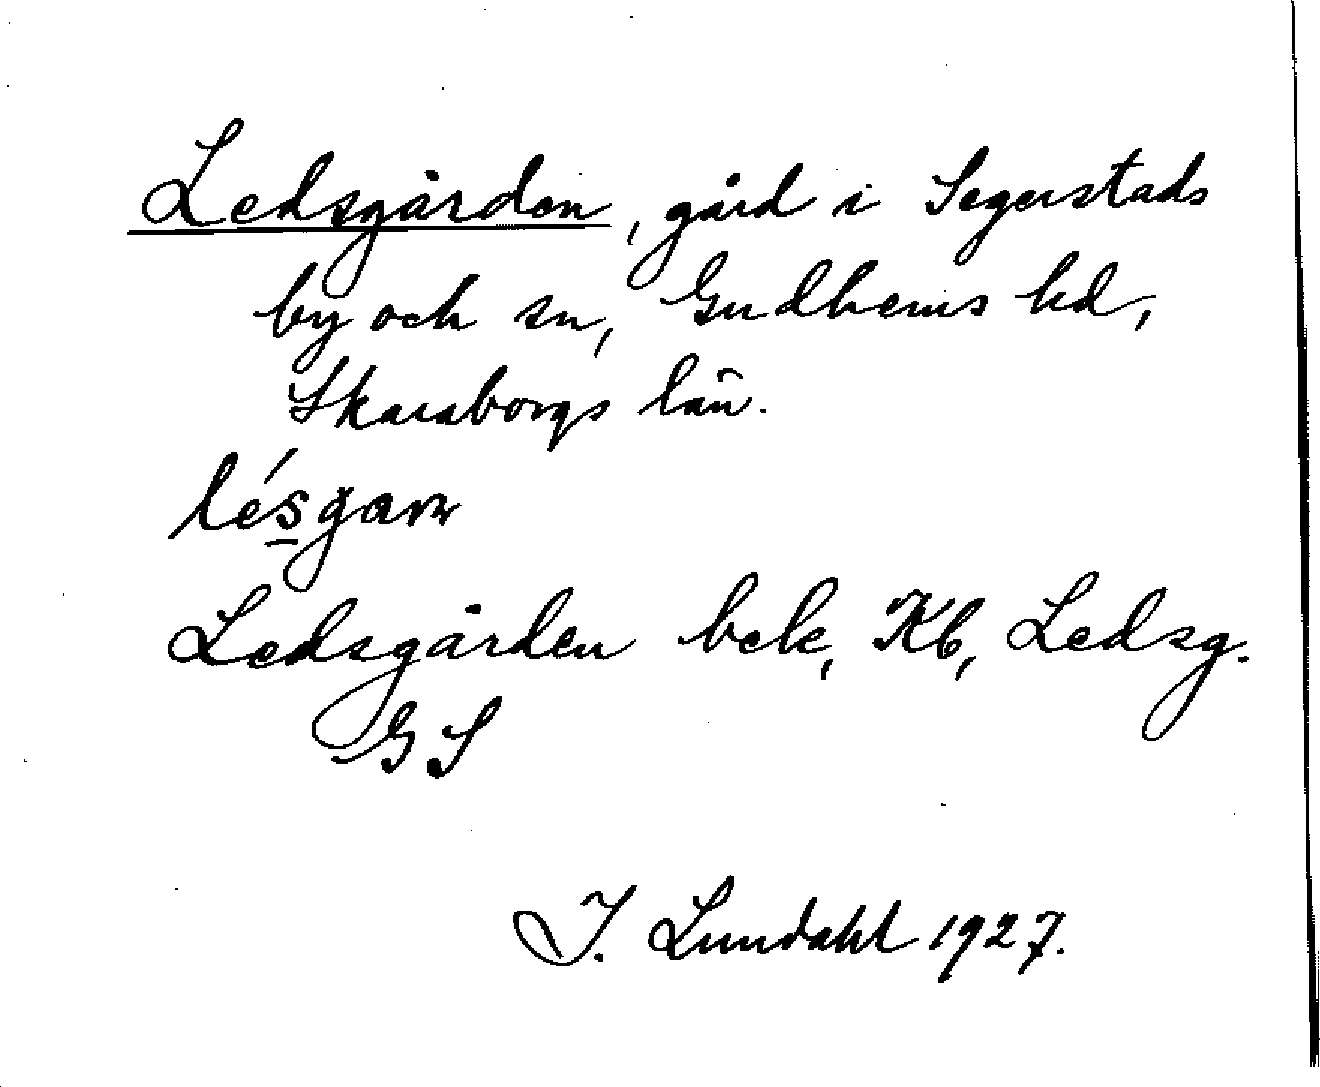 Ledsgården, gård i Segerstads
by och sn, Gudhems hd,
Skaraborgs län.
Ledsgården bek, Kb, Ledsg.
GS
I. Lundahl 1927.